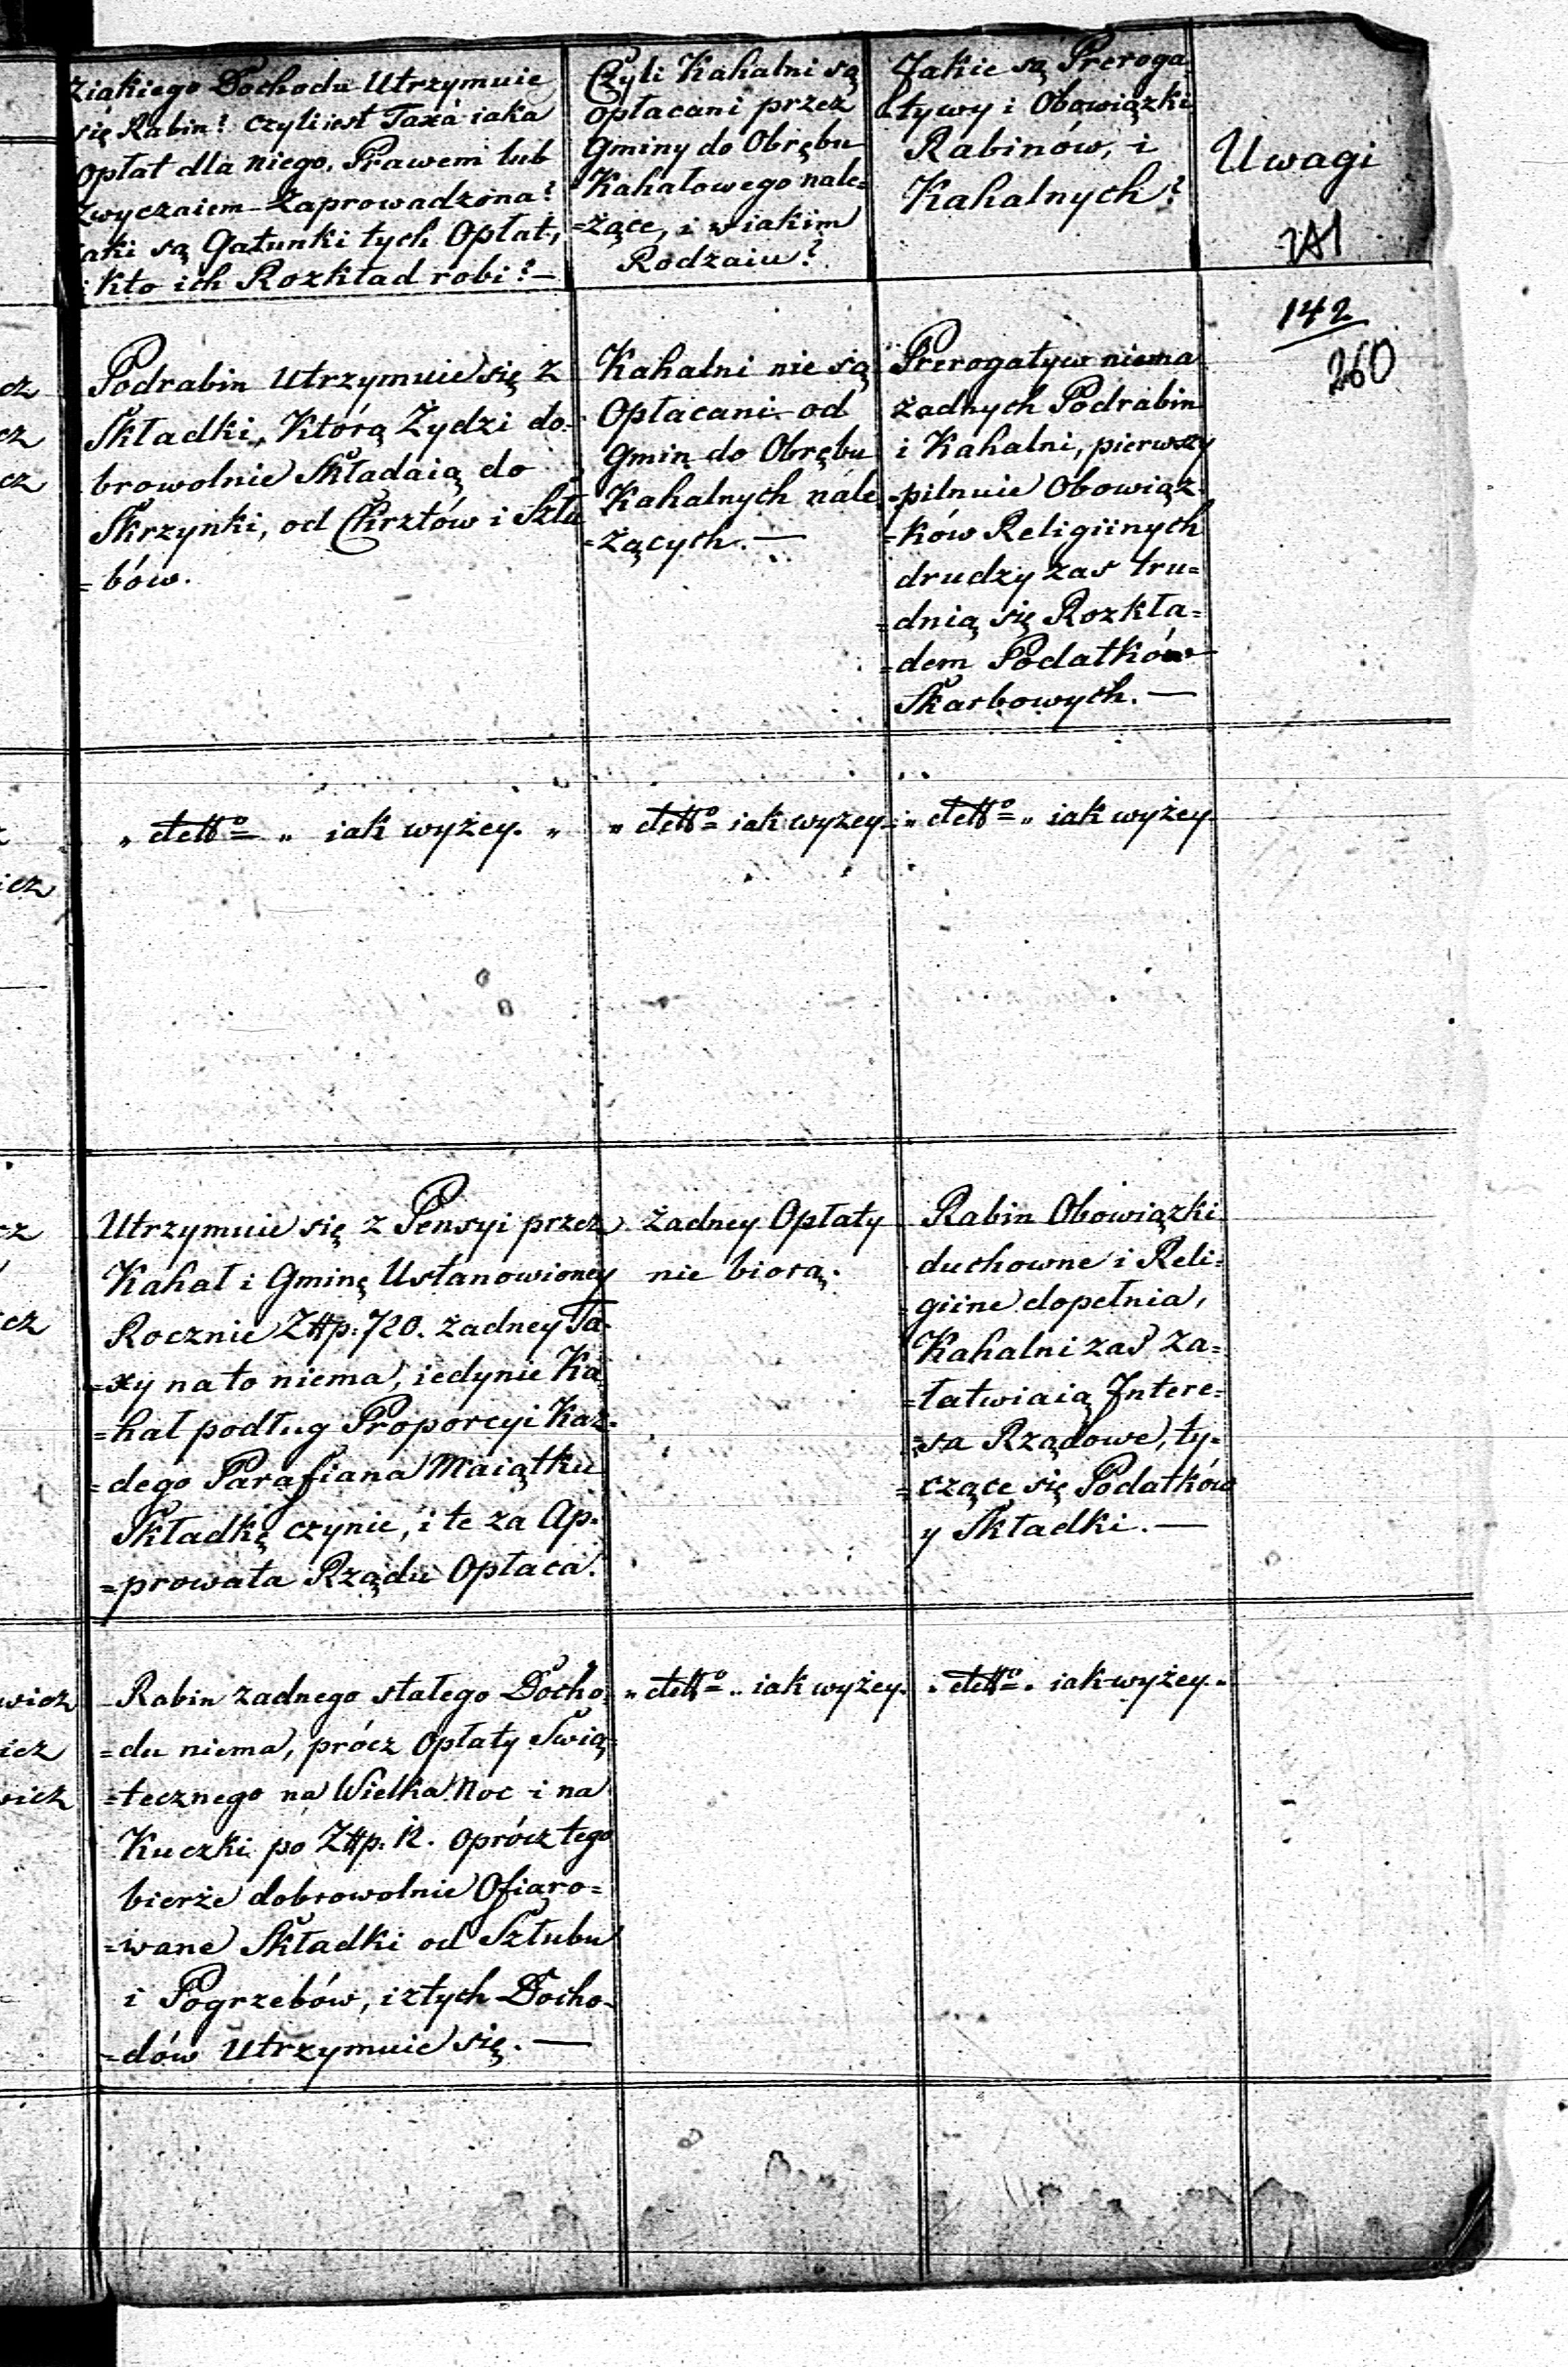 Ziakiego Dochodu Utrzymuie
się Rabin? czyli iest Taxa iaka
Opłat dla niego, Prawem lub
Zwyczaiem Zaprowadzona?
iaki są Gatunki tych Opłat,
i Kto ich Rozkład robi?—
Czyli Kahalni są
Opłacani przez
Gminy do Obrębu
Kahałowego nale=
=żące, i w iakim
Rodzaiu?
Jakie są Preroga
tywy i Obowiązki
Rabinów, i
Kahalnych?
Uwagi
141
142
260
cz
cz
cz
Podrabin Utrzymuie się z
Składki, Którą Żydzi do=
browolnie Składaią do
Skrzynki, od Chrztów i Szlu
=bów.
Kahalni nie są
Opłacani od
Gmin do Obrębu
Kahalnych nale
=żących.—
Prerogatyw niema
żadnych Podrabin
i Kahalni, pierwszy
=pilnuie Obowiąz=
=ków Religiinych
drudzy zas tru=
=dnią się Rozkła=
=dem Podatków
Skarbowych.—
icz
„ detto „ iak wyżey. „
„ detto iak wyżey.
„ detto „ iak wyżey
cz
cz
Utrzymuie się z Pensyi przez
Kahał i Gminę Ustanowioney
Rocznie Złłp: 720. żadney Ta=
=xy na to niema, iedynie Ka
=hał podług Proporcyi Kaz=
=dego Parafiana Maiątku
Składkę czynie, i te za Ap=
=prowata Rządu Opłaca.
żadney Opłaty
nie biorą.
Rabin Obowiązki
duchowne i Reli=
=giine dopełnia,
Kahalni zaś Za=
=łatwiaią Intere=
=sa Rządowe, ty=
=czące się Podatków
y Składki.—
wicz
icz
wicz
Rabin żadnego stałego Docho=
=du niema, prócz Opłaty Swią=
=tecznego na Wielka Noc i na
Kuczki po Złłp. 12. oprócz tego
bierże dobrowolnie Ofiaro=
=wane Składki od Szlubu
i Pogrzebów, i z tych Docho=
=dów Utrzymuie się.—
„ detto „ iak wyżey.
„ detto „ iak wyżey „